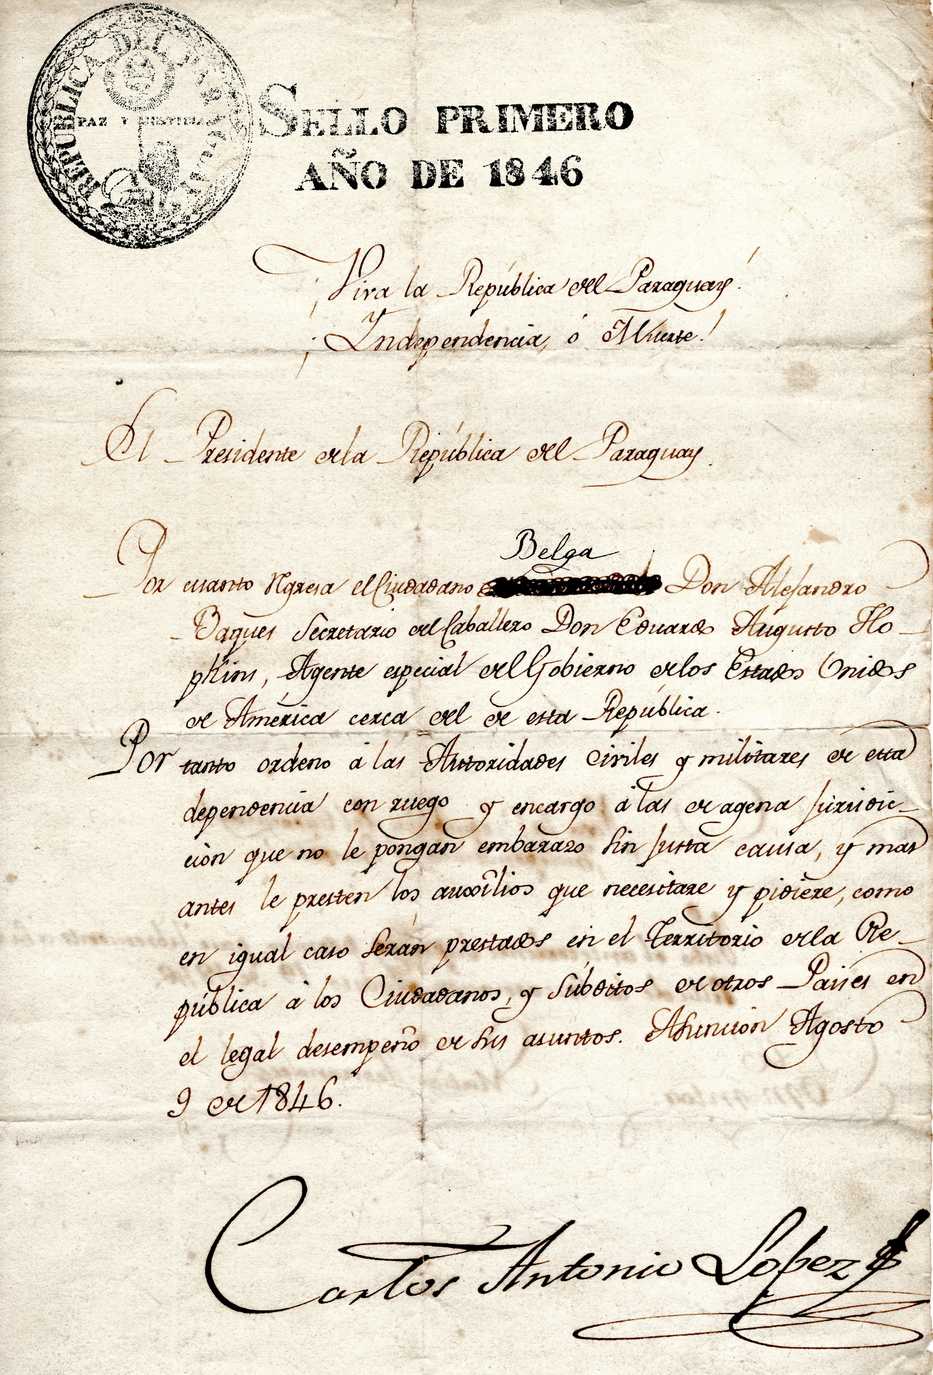 REPUBLICA DEL PARAGUAY
PAZ Y JUSTICIA
SELLO PRIMERO
AÑO DE 1846
¡Viva la República del Paraguay!
¡Independencia, ó Muerte!
El Presidente de la República del Paraguay.
Belga
Por cuanto regresa el Ciudadano Don Alejandro
Baques Secretario del Caballero Don Eduardo Augusto Ho-
pkins, Agente especial del Gobierno de los Estados Unidos
de América cerca del de esta República.
Por tanto ordeno á las Autoridades civiles y militares de esta
dependencia con ruego y encargo á las de agena jurisdic-
cion que no le pongan embarazo sin justa causa, y mas
antes le presten los auxílios que necesitare y pidiere, como
en igual caso serán prestados en el Territorio de la Re-
pública á los Ciudadanos, y Súbditos de otros Paises en
el legal desempeño de sus asuntos. Asuncion Agosto
9 de 1846.
Carlos Antonio Lopez